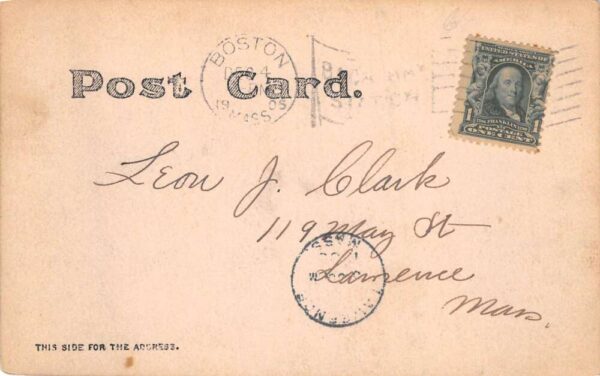 BOSTON
DEC 4
19 05
MASS.
BACK BAY
STATION
UNITED STATES OF
AMERICA
1 FRANKLIN 1
POSTAGE
ONE CENT
Post Card.
Leon J. Clark
119 May St
Lawrence
Mass.
LAWRENCE
MASS.
THIS SIDE FOR THE ADDRESS.